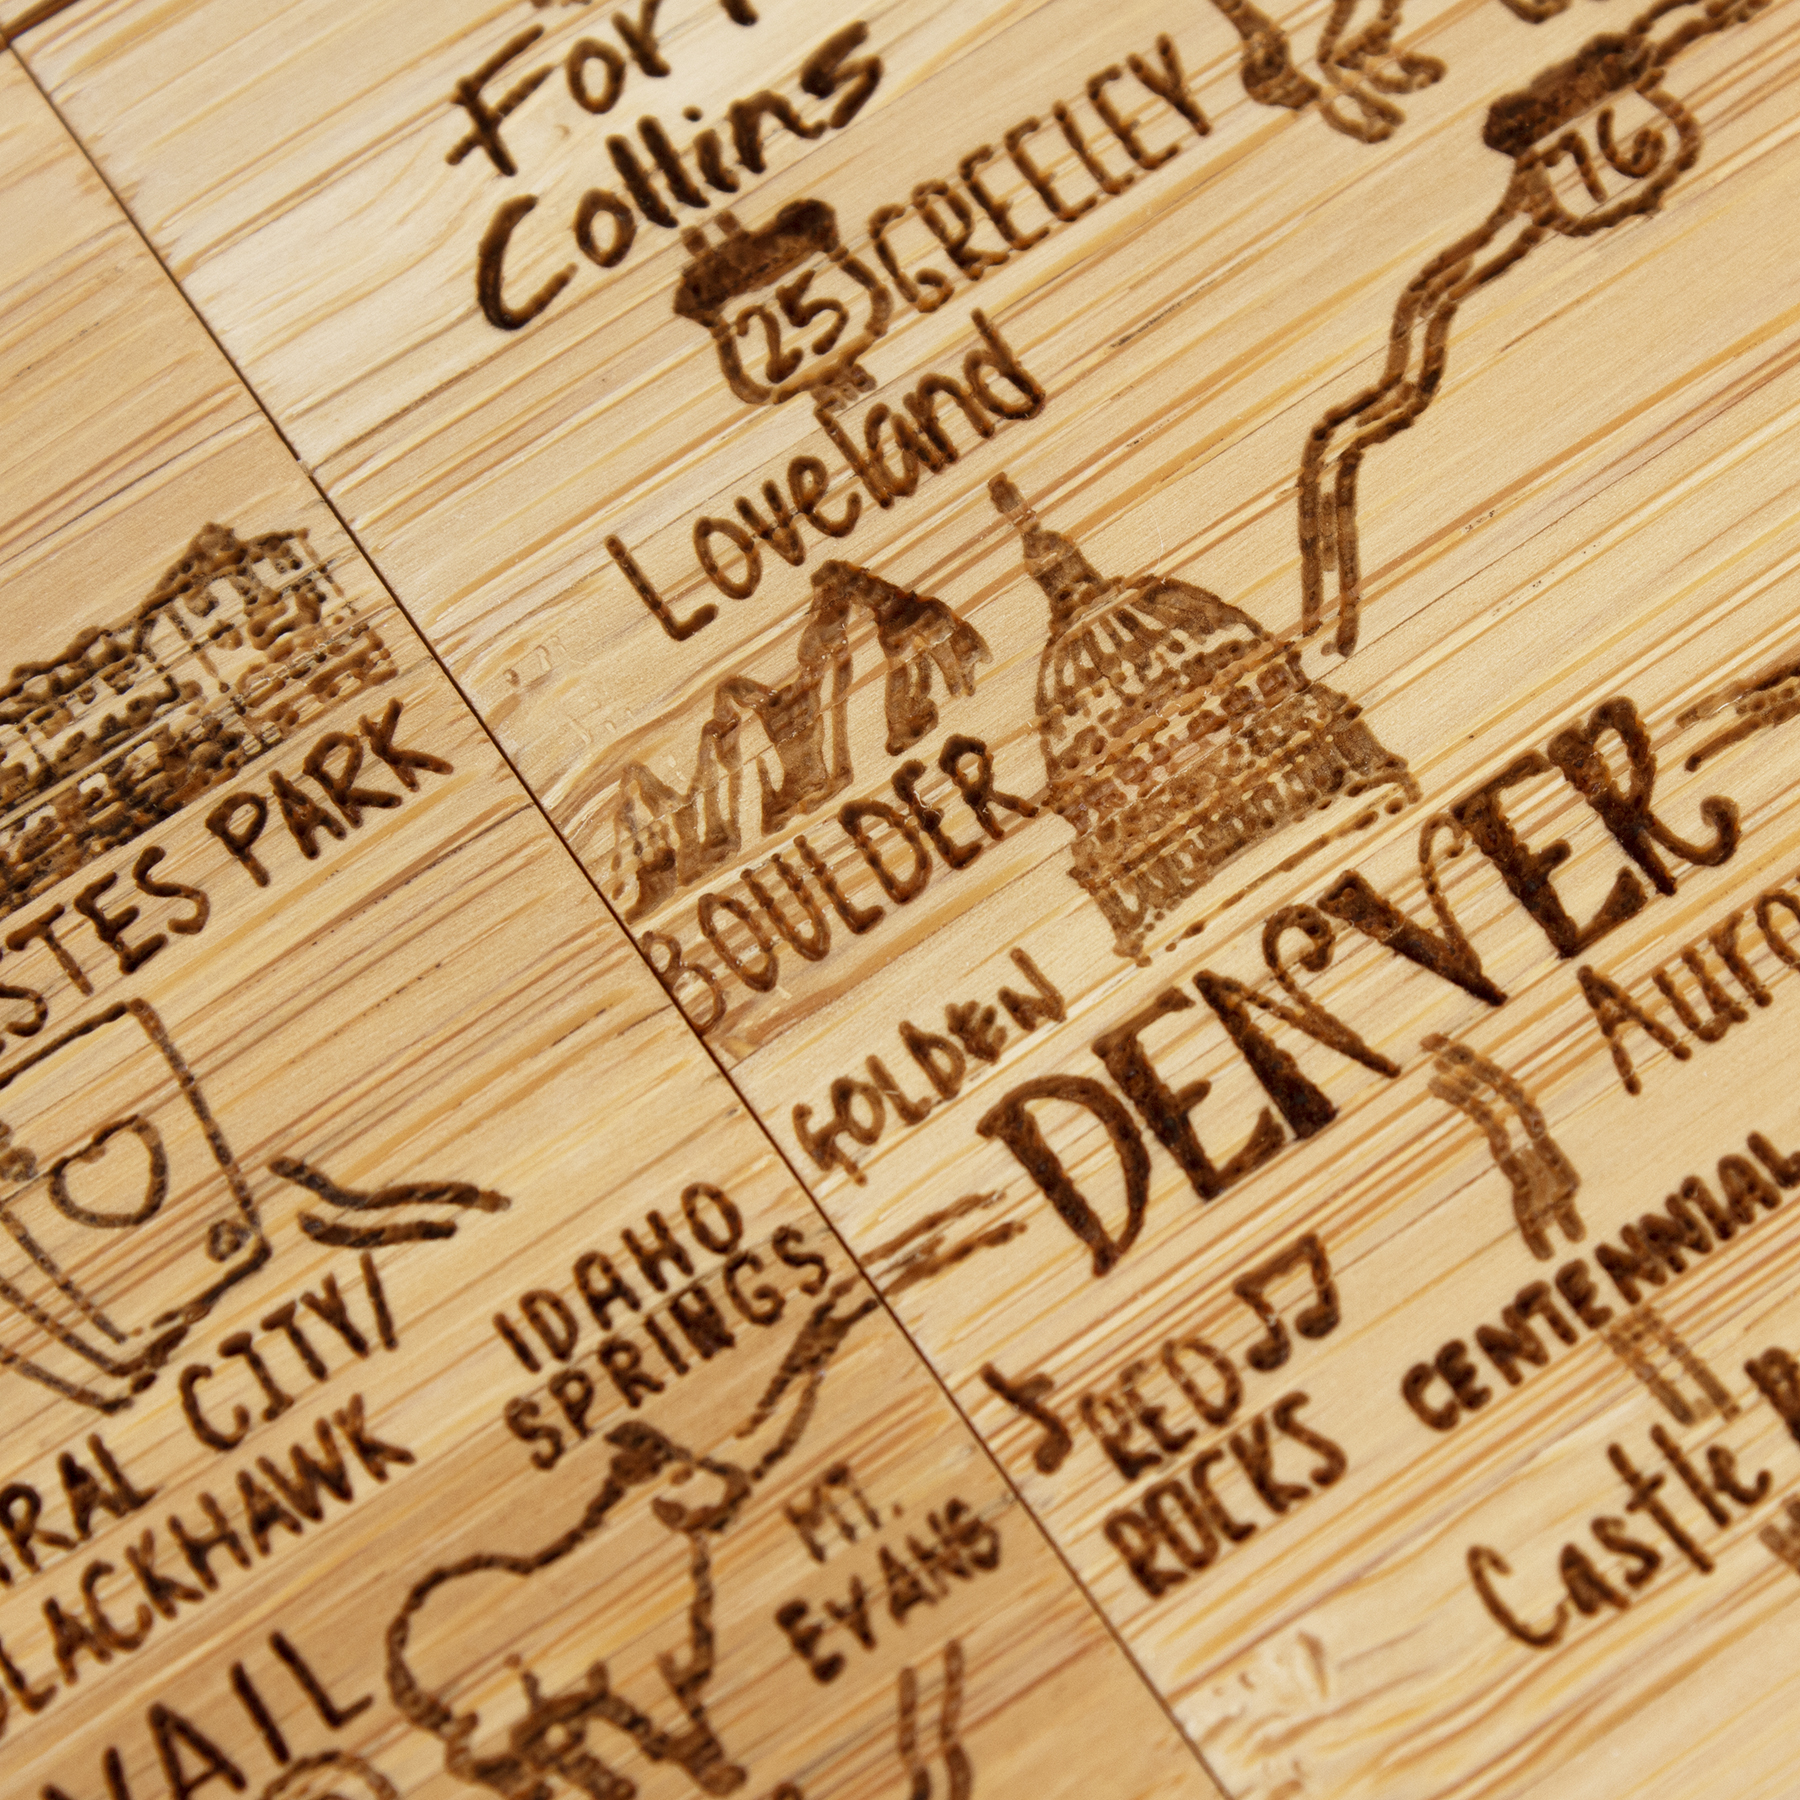 Fort
Collins
25
GREELEY
76
Loveland
BOULDER
GOLDEN
DENVER
ESTES PARK
CENTENNIAL
IDAHO
SPRINGS
RED
ROCKS
CITY/
MT.
EVANS
Castle
VAIL